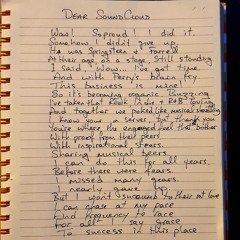 Dear SoundCloud
Wow! So proud! I did it.
Somehow I didn't give up.
was Springsteen & Farrell
At their age on a stage. Still standing
I said, Wow. I've got time.
And with Perry's brain fry.
This business is mine!
So it's becoming organic. Buzzing
I've taken that Rock Indie + R&B loving
And together we poked like musical
I know your a server, but thank you
You're where the engaged feel that bother
With proof from their peers
With inspirational tears.
Sharing musical beers.
I can do this for all years.
Before there were fears.
I missed many years.
I nearly gave up
But I won't succumb to their
I can share at my pace
Find frequency to race
For all I say grace
To success in this place